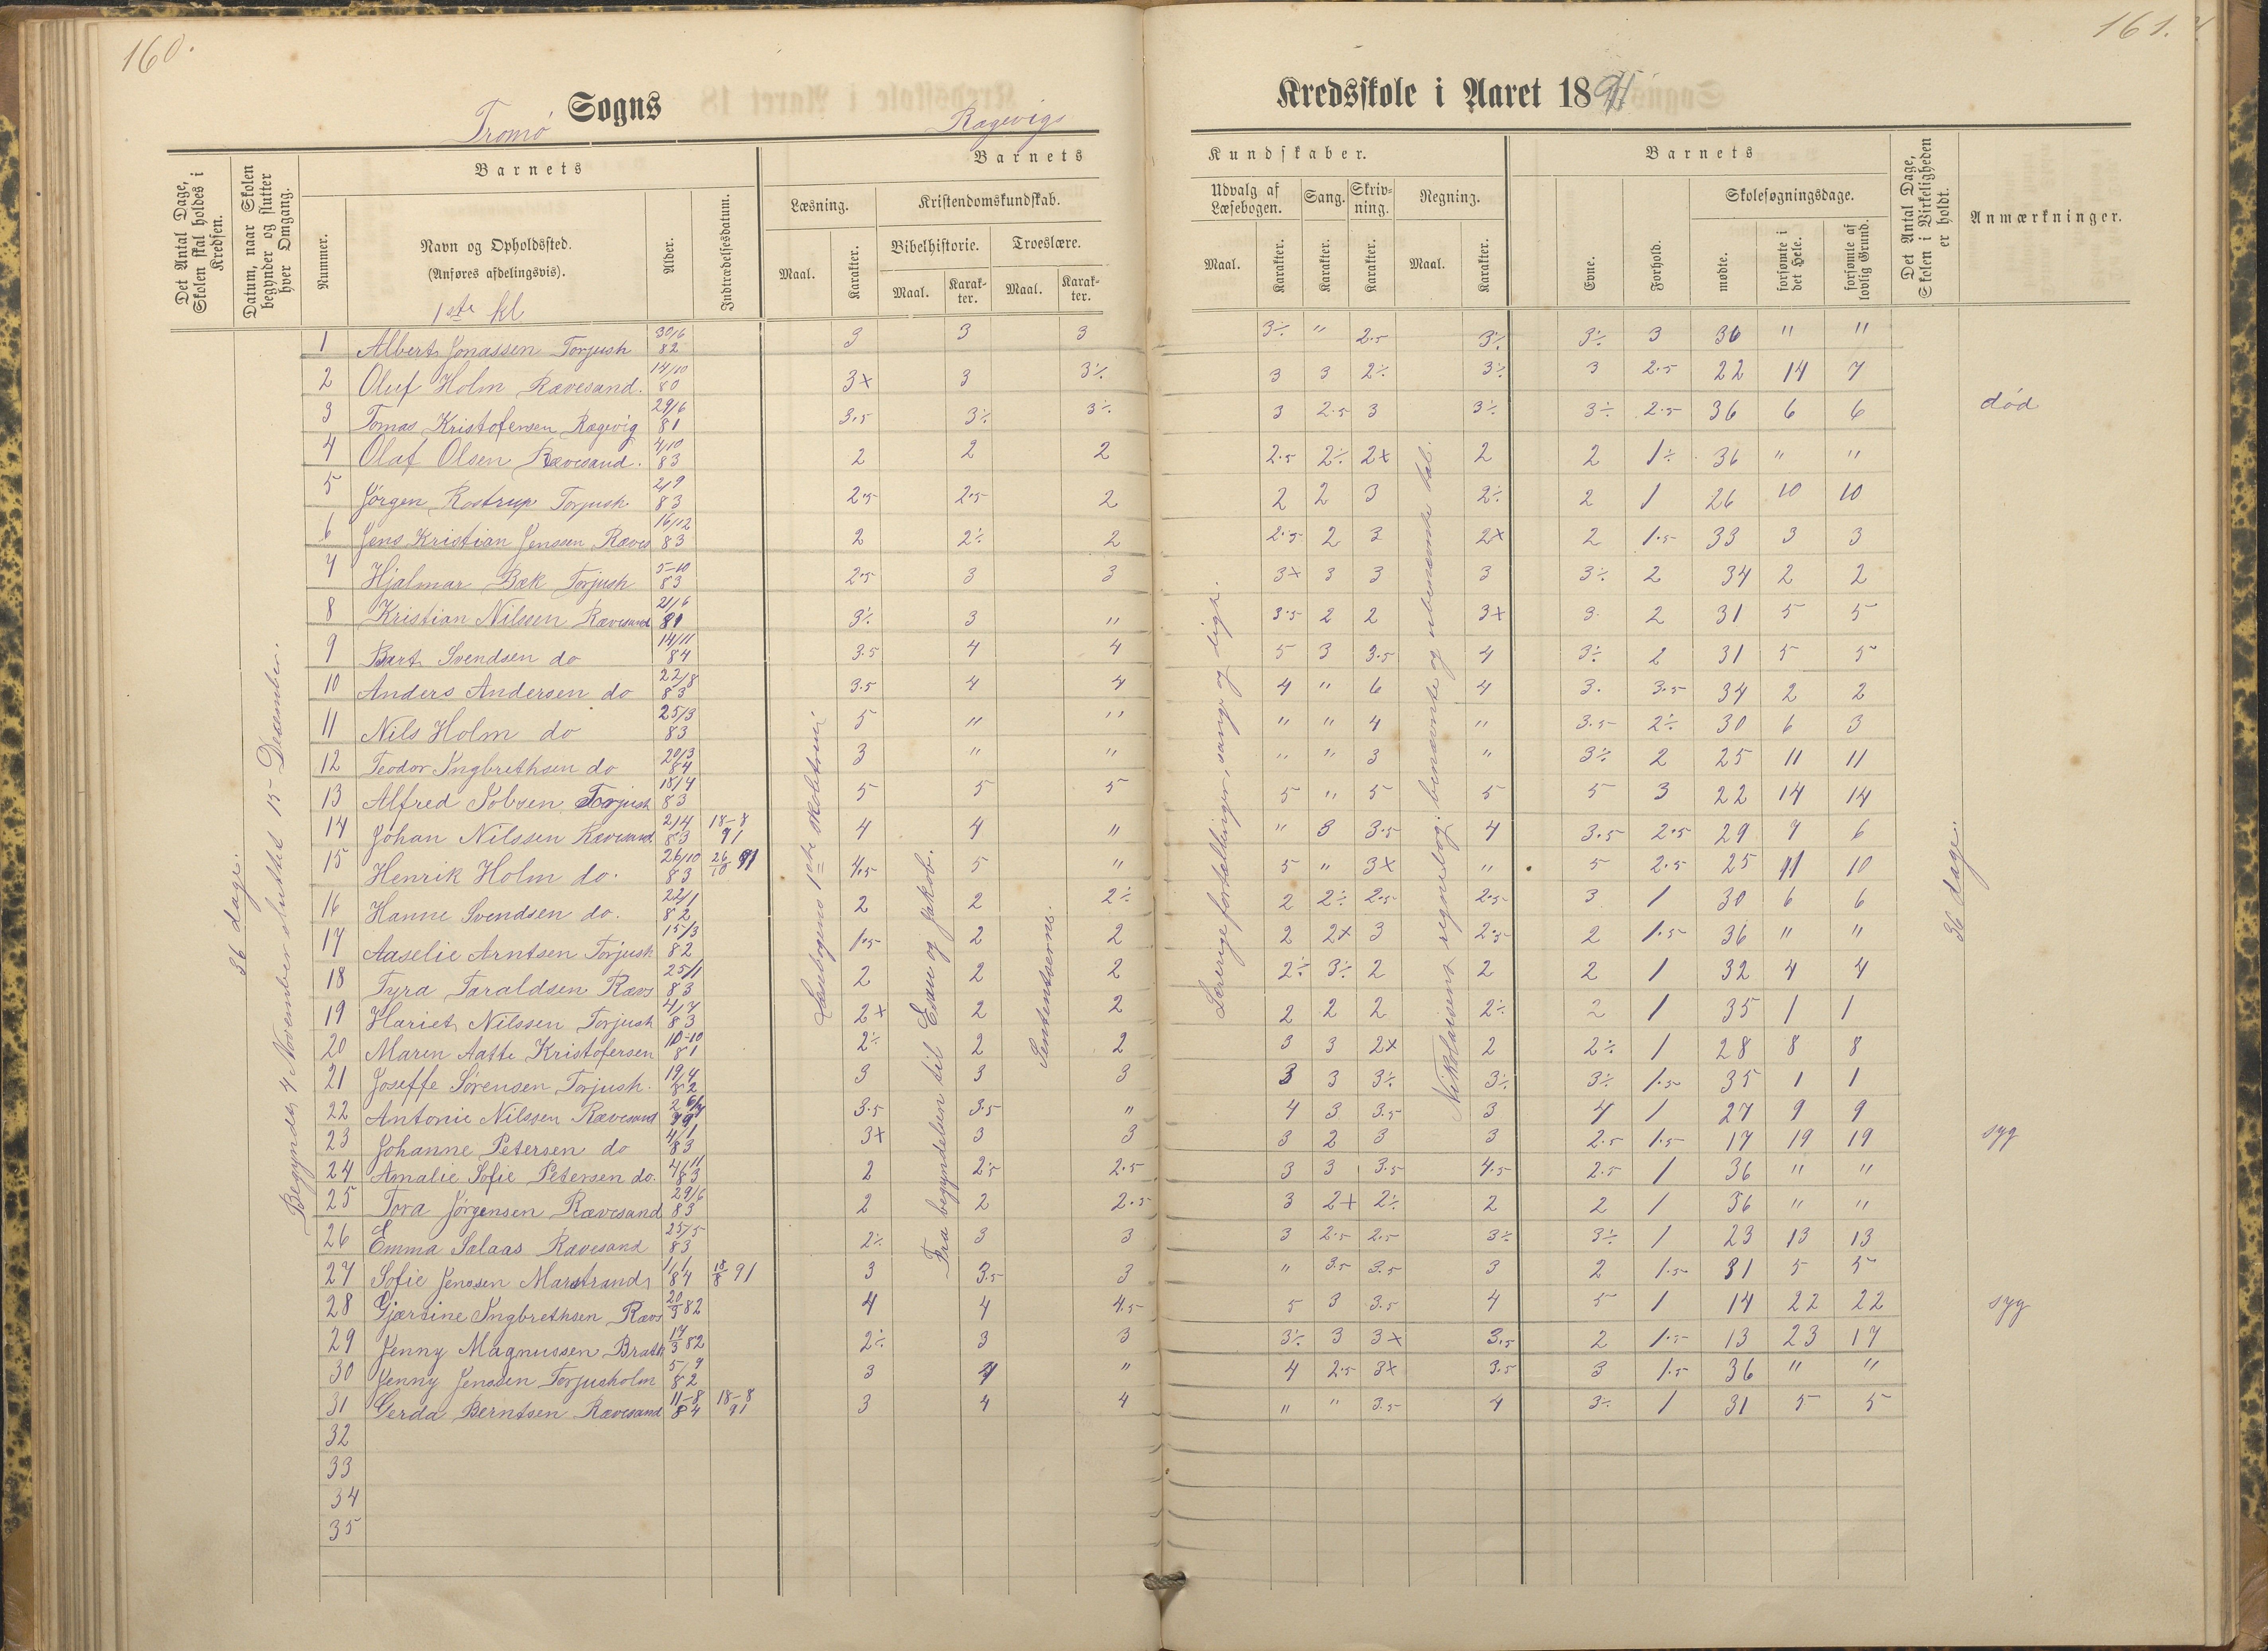 160.
161.
Tromø Sogns
Ragevigs
Kredsskole i Aaret 1891
Det Antal Dage, Skolen skal holdes i Kredsen.
Datum, naar Skolen begynder og slutter hver Omgang.
Nummer.
Barnets
Navn og Opholdssted.
(Anføres afdelingsvis).
Alder.
Indtrædelsesdatum.
Barnets
Læsning.
Maal.
Karakter.
Kristendomskundskab.
Bibelhistorie.
Maal.
Karakter.
Troeslære.
Maal.
Karakter.
Kundskaber.
Udvalg af Læsebogen.
Maal.
Karakter.
Sang.
Karakter.
Skrivning.
Karakter.
Regning.
Maal.
Karakter.
Barnets
Evne.
Forhold.
Skolesøgningsdage.
mødte.
forsømte i det Hele.
forsømte af lovlig Grund.
Det Antal Dage, Skolen i Virkeligheden er holdt.
Anmærkninger.
1ste kl
36 dage.
Begyndes 4 November sluttet 15 Desember.
Læsebogens 1ste skoletrin
Fra begyndelsen til Esau og Jakob.
Sentensterne.
Lærerige fortællinger, sange og digt.
Nikolaisens regnebog: benævnte og ubenævnte tal.
36 dage.
1 Albert Jonassen Torjush 30/6 82 3 3 3 3÷ " 2.5 3÷ 3÷ 3 36 " "
2 Oluf Holm Rævesand. 14/10 80 3× 3 3÷ 3 3 2÷ 3÷ 3 2.5 22 14 7
3 Tomas Kristofersen Ragevig 29/6 81 3.5 3÷ 3÷ 3 2.5 3 3÷ 3÷ 2.5 36 6 6 død
4 Olaf Olsen Rævesand. 4/10 83 2 2 2 2.5 2÷ 2× 2 2 1÷ 36 " "
5 Jørgen Rostrup Torjush 2/9 83 2.5 2.5 2 2 2 3 2÷ 2 1 26 10 10
6 Jens Kristian Jenssen Ræves 16/12 83 2 2÷ 2 2.5 2 3 2× 2 1.5 33 3 3
7 Hjalmar Bæk Torjush 5-10 83 2.5 3 3 3× 3 3 3 3÷ 2 34 2 2
8 Kristian Nilssen Rævesand 21/6 81 3÷ 3 " 3.5 2 2 3× 3. 2 31 5 5
9 Bært Svendsen do 14/11 84 3.5 4 4 5 3 3.5 4 3÷ 2 31 5 5
10 Anders Andersen do 22/8 83 3.5 4 4 4 " 6 4 3. 3.5 34 2 2
11 Nils Holm do 25/3 83 5 " " " " 4 " 3.5 2÷ 30 6 3
12 Teodor Yngbrethsen do 20/3 84 3 " " " " 3 " 3÷ 2 25 11 11
13 Alfred Solvsen Torjush 18/4 83 5 5 5 5 " 5 5 5 3 22 14 14
14 Johan Nilssen Rævesand. 2/4 83 18-8 91 4 4 " " 3 3.5 4 3.5 2.5 29 7 6
15 Henrik Holm do. 26/10 83 26/10 91 4.5 5 " 5 " 3× " 5 2.5 25 11 10
16 Hanne Svendsen do. 22/1 82 2 2 2÷ 2 2÷ 2.5 2.5 3 1 30 6 6
17 Aaselie Arntsen Torjush 15/3 82 1.5 2 2 2 2× 3 2.5 2 1.5 36 " "
18 Tyra Taraldsen Rævs 25/1 83 2 2 2 2÷ 3÷ 2 2 2 1 32 4 4
19 Hariet Nilssen Torjush 4/7 83 2× 2 2 2 2 2 2÷ 2 1 35 1 1
20 Maren Aatte Kristofersen 10-10 81 2÷ 2 2 3 3 2× 2 2÷ 1 28 8 8
21 Joseffe Sørensen Torjush. 19/4 82 3 3 3 3 3 3÷ 3÷ 3÷ 1.5 35 1 1
22 Antonie Nilssen Rævesand 3.5 3.5 " 4 3 3.5 3 4 1 27 9 9
23 Johanne Petersen do 4/1 83 3× 3 3 3 2 3 3 2.5 1.5 17 19 19 syg
24 Amalie Sofie Petersen do. 4/11 83 2 2.5 2.5 3 3 3.5 4.5 2.5 1 36 " "
25 Tora Jørgensen Rævesand 29/6 83 2 2 2.5 3 2+ 2÷ 2 2 1 36 " "
26 Emma Salaas Rævesand 25/5 83 2÷ 3 3 3 2.5 2.5 3÷ 3÷ 1 23 13 13
27 Sofie Jenssen Marstrand 1/1 84 18/8 91 3 3.5 3 " 3.5 3.5 3 2 1.5 31 5 5
28 Gjærsine Yngbrethsen Rævs 20/9 82 4 4 4.5 5 3 3.5 4 5 1 14 22 22 syg
29 Jenny Magnussen Bratt 17/3 82 2÷ 3 3 3÷ 3 3× 3.5 2 1.5 13 23 17
30 Jenny Jenssen Torjusholm 5/9 82 3 4 " 4 2.5 3× 3.5 3 1.5 36 " "
31 Gerda Berntsen Rævesand 11-8 84 18-8 91 3 4 4 " " 3.5 4 3÷ 1 31 5 5
32
33
34
35